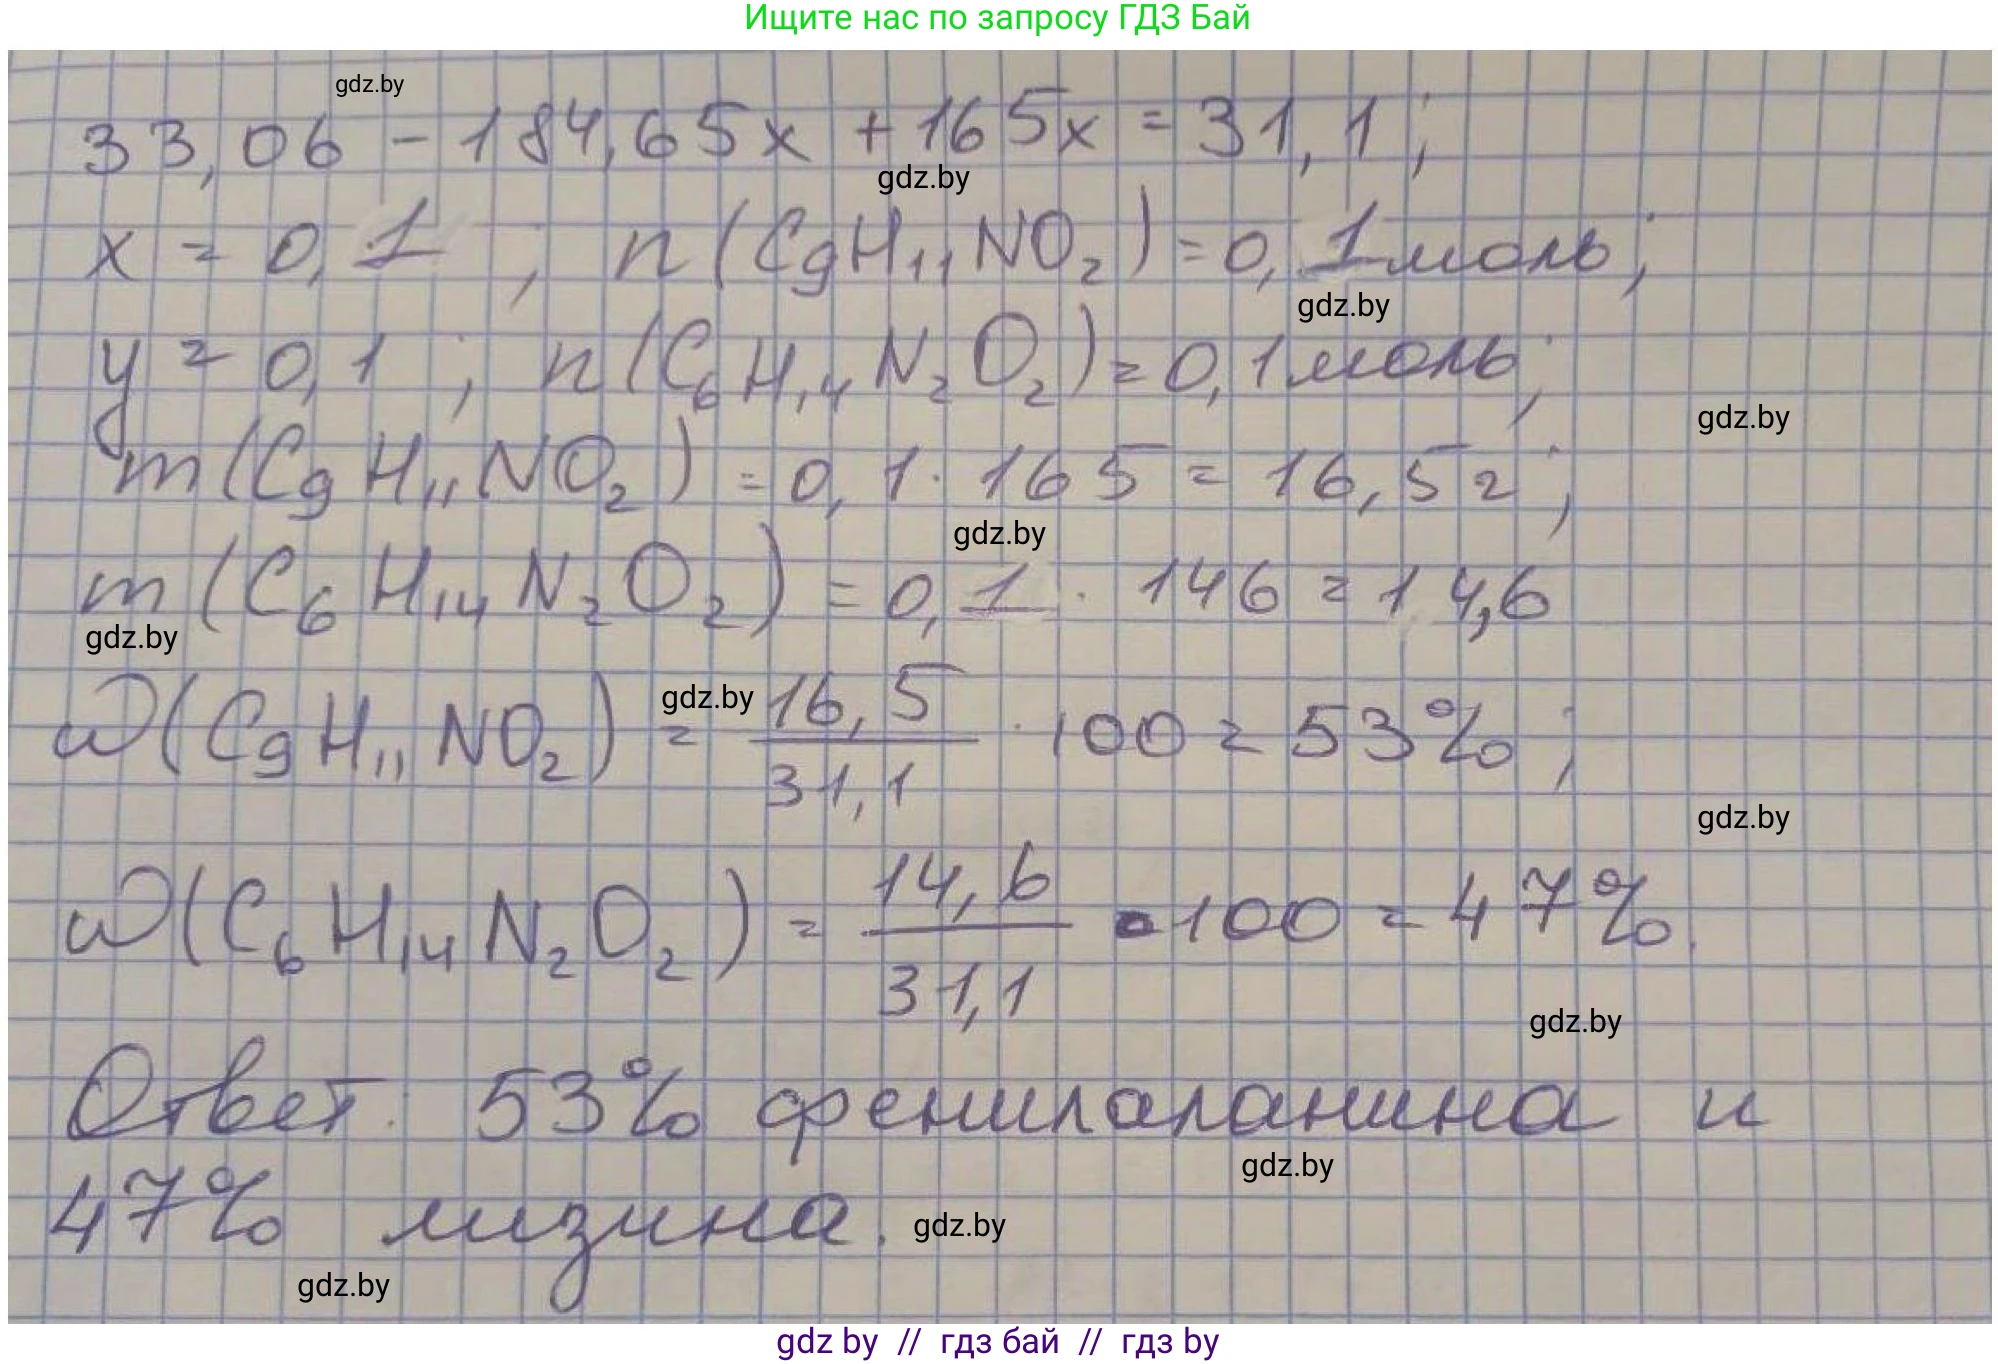 Ищите нас по запросу ГДЗ Бай
gdz.by
33,06 - 184,65x + 165x = 31,1;
gdz.by
x = 0,1; n(C₉H₁₁NO₂) = 0,1 моль;
gdz.by
y = 0,1; n(C₆H₁₄N₂O₂) = 0,1 моль;
gdz.by
m(C₉H₁₁NO₂) = 0,1 · 165 = 16,5 г;
gdz.by
m(C₆H₁₄N₂O₂) = 0,1 · 146 = 14,6
gdz.by
gdz.by
ω(C₉H₁₁NO₂) = 16,5/31,1 · 100 = 53%;
gdz.by
ω(C₆H₁₄N₂O₂) = 14,6/31,1 · 100 = 47%.
gdz.by
Ответ: 53% фенилаланина и
gdz.by
47% лизина.
gdz.by
gdz.by
gdz by // гдз бай // гдз by